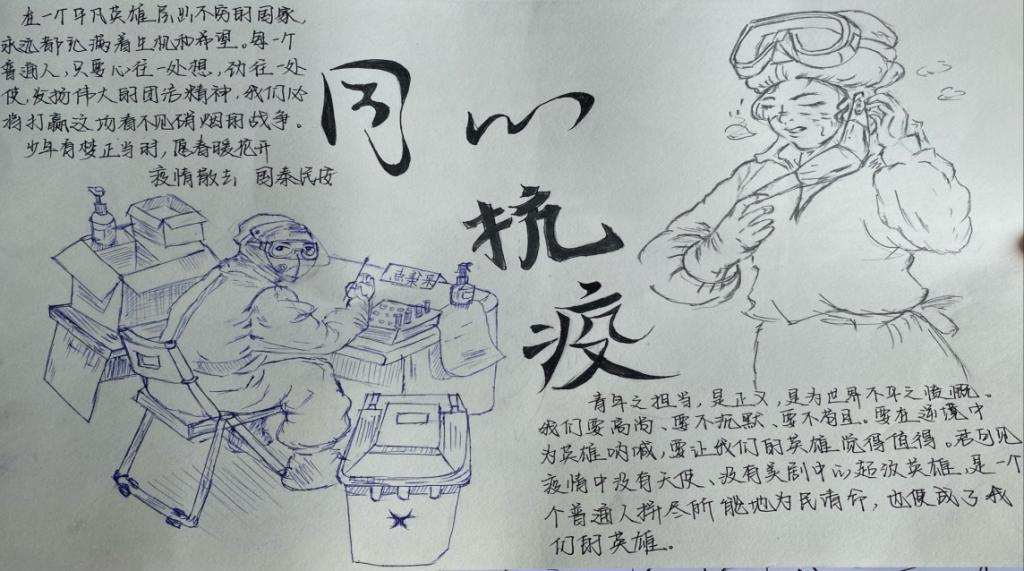 在一个平凡英雄层出不穷的国家,
永远都充满着生机和希望。每一个
普通人,只要心往一处想,劲往一处
使,发扬伟大的团结精神,我们必
将打赢这场看不见硝烟的战争。
少年有梦正当时,愿春暖花开
疫情散去 国泰民安
同心
抗
疫
采
青年之担当,是正义,是为世界不平之愤慨。
我们要高尚、要不沉默、要不苟且。要在逆境中
为英雄呐喊,要让我们的英雄觉得值得。
疫情中没有天使、没有美剧中的超级英雄,是一个
个普通人拼尽所能地为民请命,也便成了我
们的英雄。